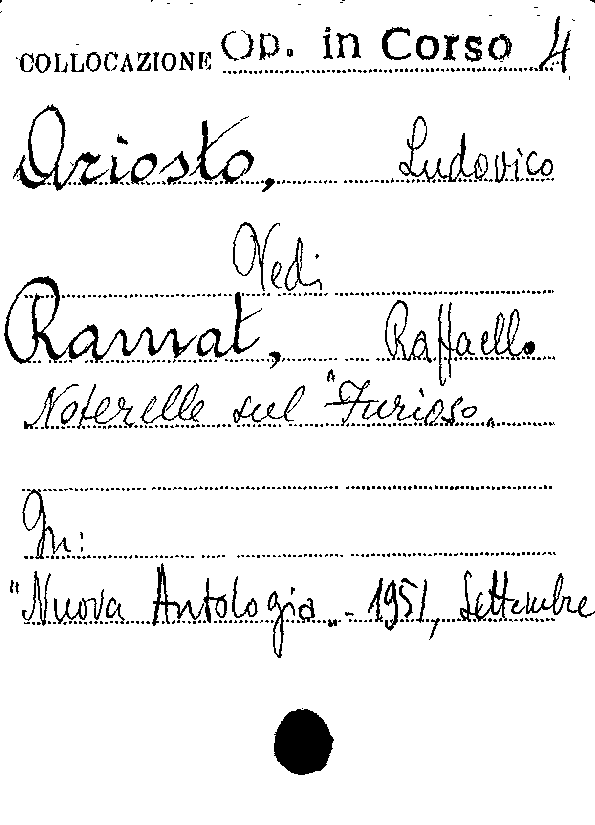 COLLOCAZIONE Op. in Corso 4
Ariosto, Ludovico
Vedi
Ramat, Raffaello
Noterelle sul "Furioso„
In:
"Nuova Antologia„ - 1951, Settembre